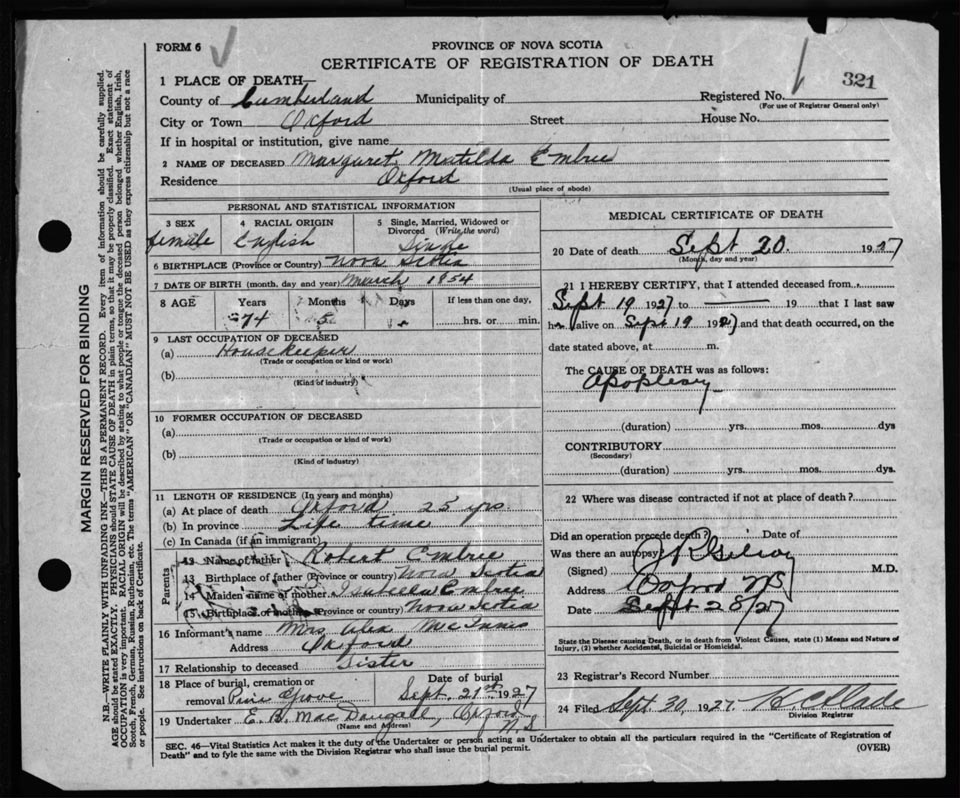 FORM 6
PROVINCE OF NOVA SCOTIA
CERTIFICATE OF REGISTRATION OF DEATH
321
1 PLACE OF DEATH—
County of Cumberland Municipality of Registered No.
(For use of Registrar General only)
City or Town Oxford Street House No.
If in hospital or institution, give name
2 NAME OF DECEASED Margaret Matilda Embree
Residence Oxford
(Usual place of abode)
PERSONAL AND STATISTICAL INFORMATION
3 SEX 4 RACIAL ORIGIN 5 Single, Married, Widowed or
Divorced (Write the word)
female English Single
6 BIRTHPLACE (Province or Country) Nova Scotia
7 DATE OF BIRTH (month, day and year) March 1854
8 AGE Years Months Days If less than one day,
74 5 hrs. or min.
9 LAST OCCUPATION OF DECEASED
(a) Housekeeper
(Trade or occupation or kind of work)
(b)
(Kind of industry)
10 FORMER OCCUPATION OF DECEASED
(a)
(Trade or occupation or kind of work)
(b)
(Kind of industry)
11 LENGTH OF RESIDENCE (In years and months)
(a) At place of death Oxford 25 yrs
(b) In province Life time
(c) In Canada (if an immigrant)
Parents
12 Name of father Robert Embree
13 Birthplace of father (Province or country) Nova Scotia
14 Maiden name of mother Embree
15 Birthplace of mother (Province or country) Nova Scotia
16 Informant's name Mrs Alex McInnis
Address Oxford
17 Relationship to deceased Sister
18 Place of burial, cremation or
removal Pine Grove
Date of burial
Sept. 21st 1927
19 Undertaker E. B. MacDougall, Oxford
N.S.
(Name and address)
MEDICAL CERTIFICATE OF DEATH
20 Date of death Sept 20. 1927
(Month, day and year)
21 I HEREBY CERTIFY, that I attended deceased from
Sept 19 1927 to — 19 that I last saw
h alive on Sept 19 1927 and that death occurred, on the
date stated above, at m.
The CAUSE OF DEATH was as follows:
Apoplexy
(duration) yrs. mos. dys
CONTRIBUTORY
(Secondary)
(duration) yrs. mos. dys.
22 Where was disease contracted if not at place of death?
Did an operation precede death? Date of
Was there an autopsy
(Signed) M.D.
Address Oxford NS
Date Sept 28/27
State the Disease causing Death, or in death from Violent Causes, state (1) Means and Nature of
Injury, (2) whether Accidental, Suicidal or Homicidal.
23 Registrar's Record Number
24 Filed Sept. 30, 1927.
Division Registrar
SEC. 46—Vital Statistics Act makes it the duty of the Undertaker or person acting as Undertaker to obtain all the particulars required in the "Certificate of Registration of
Death" and to fyle the same with the Division Registrar who shall issue the burial permit.
(OVER)
MARGIN RESERVED FOR BINDING
N.B.—WRITE PLAINLY WITH UNFADING INK—THIS IS A PERMANENT RECORD. Every item of information should be carefully supplied.
AGE should be stated EXACTLY. PHYSICIANS should STATE CAUSE OF DEATH in plain terms, so that it may be properly classified. Exact statement of
OCCUPATION is very important. RACIAL ORIGIN will be described by stating to what people or tongue the deceased person belonged whether English, Irish,
Scotch, French, German, Russian, Ruthenian, etc. The terms "AMERICAN" OR "CANADIAN" MUST NOT BE USED as they express citizenship but not a race
or people. See instructions on back of Certificate.